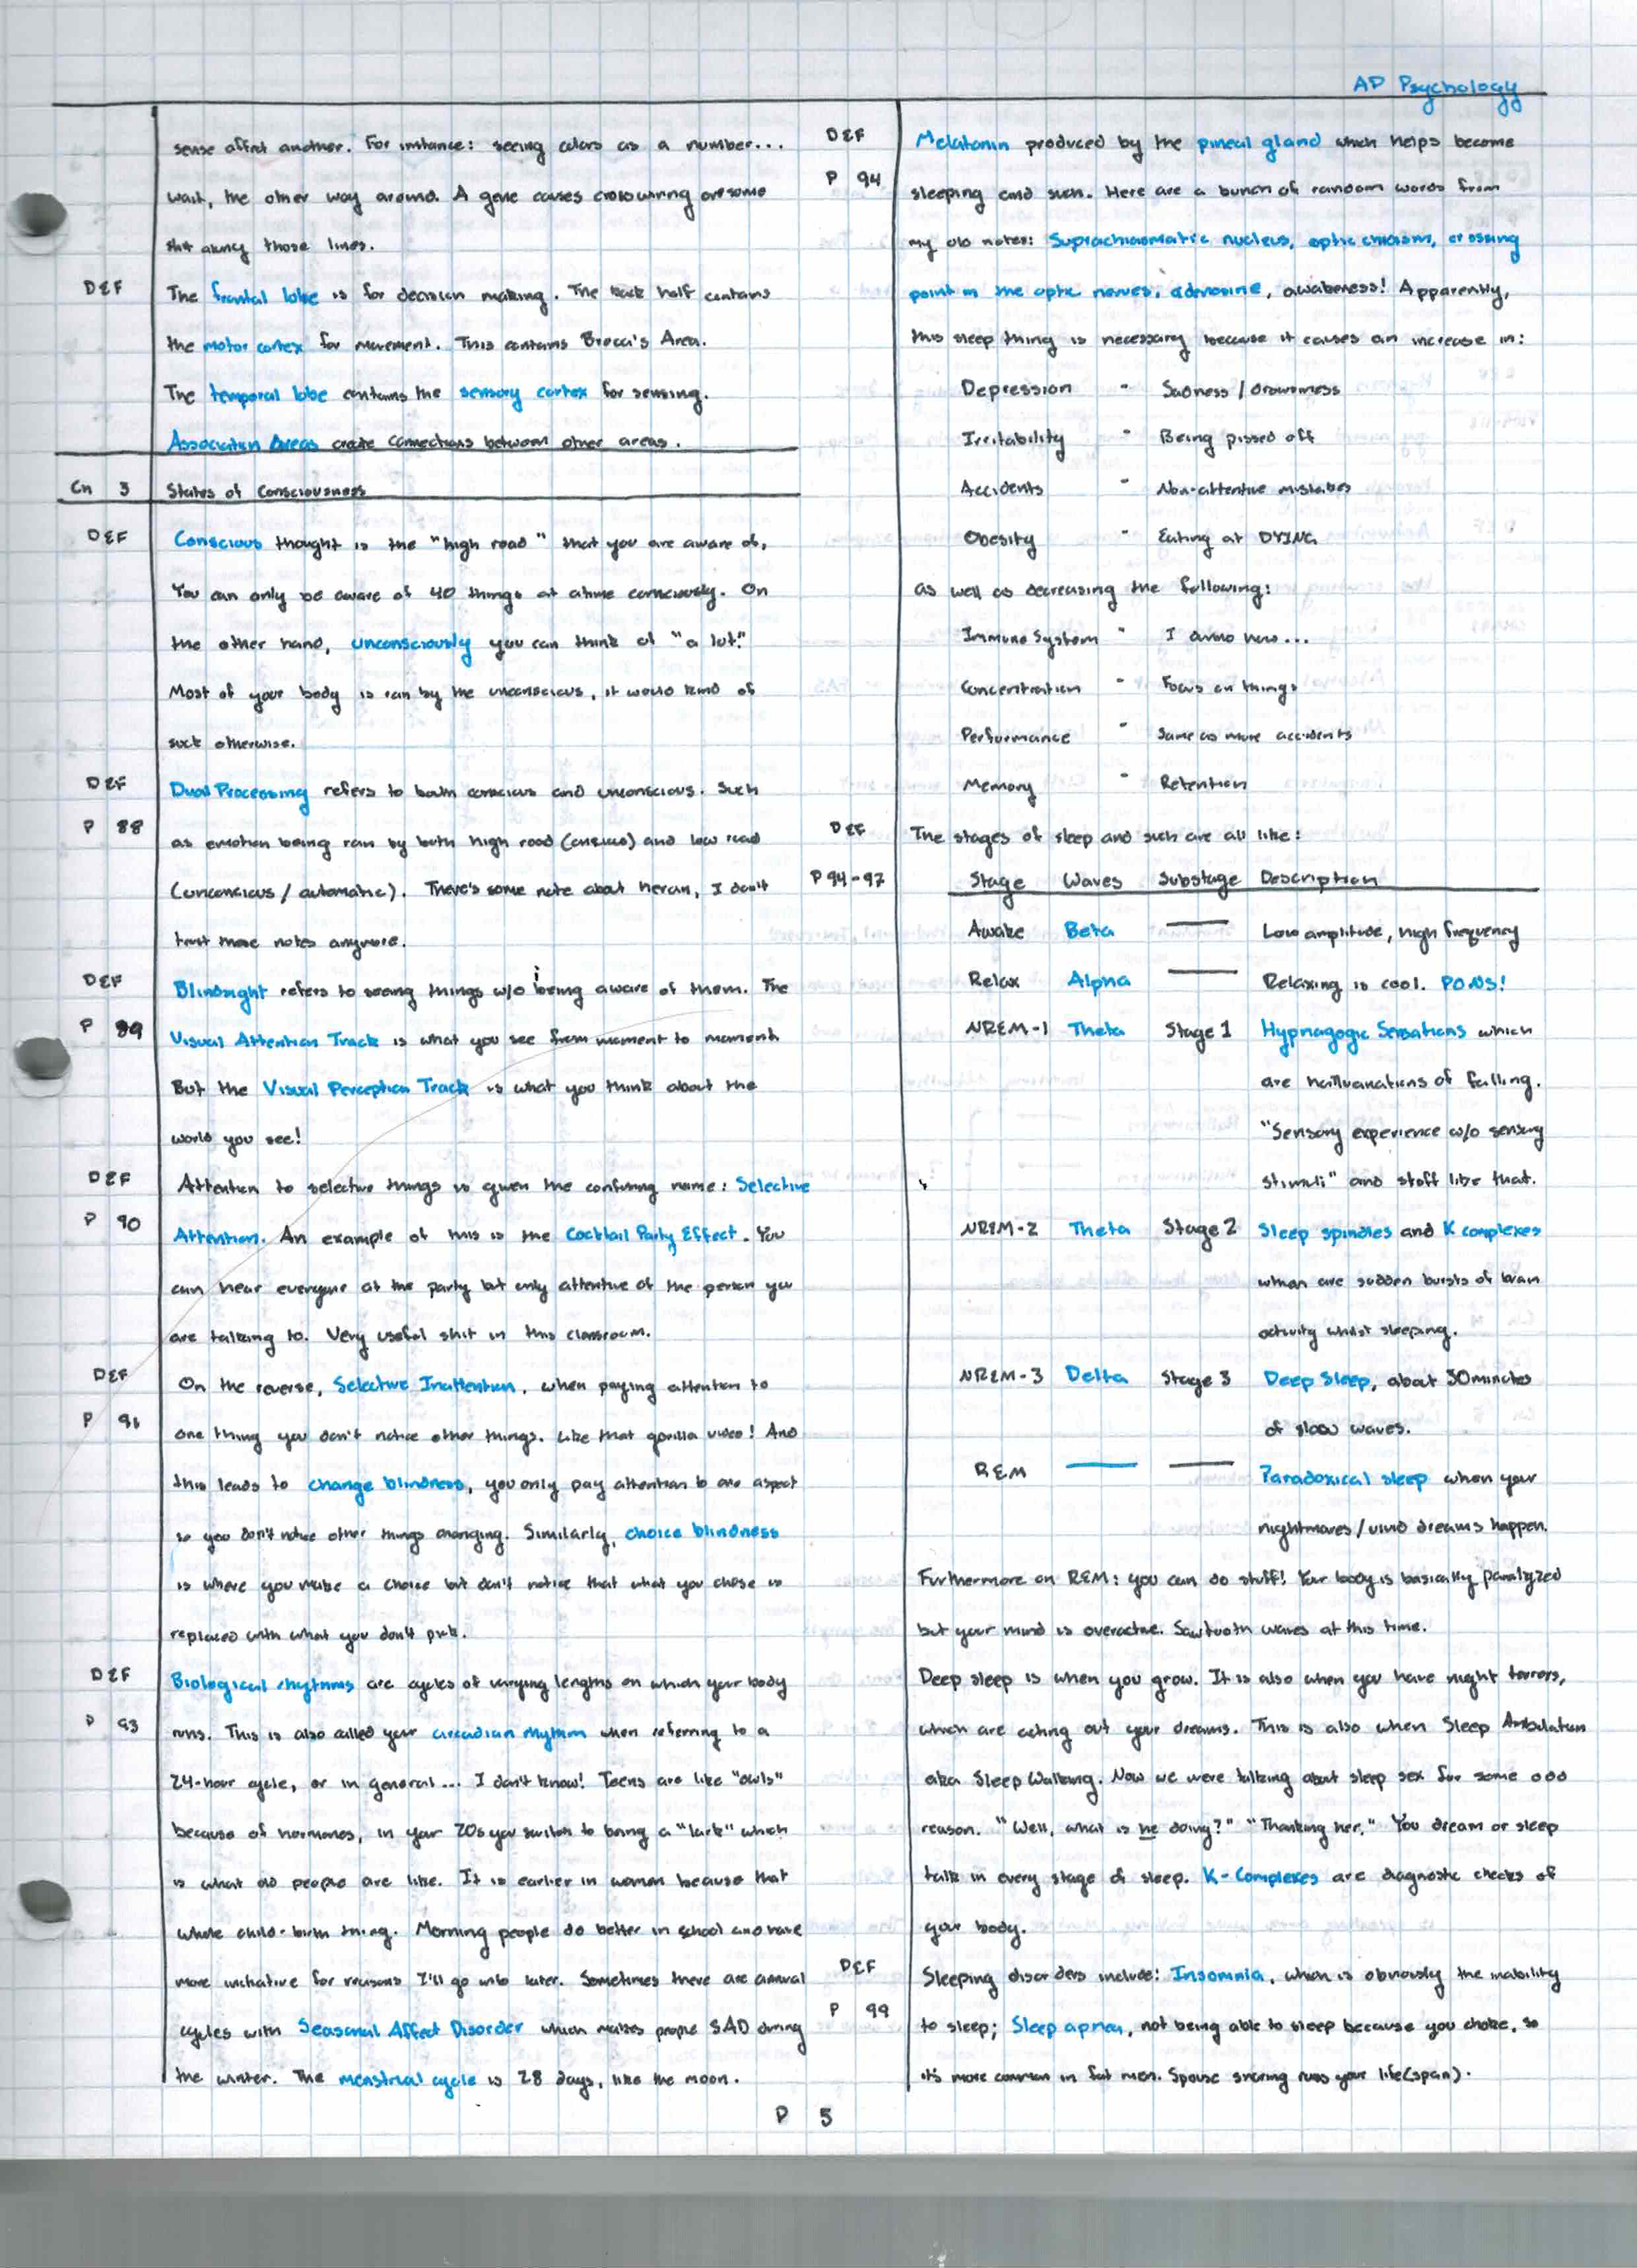 AP Psychology
sense affect another. For instance: seeing colors as a number...
wait, the other way around. A gene causes crosswiring or some
shit along those lines.
DEF The frontal lobe is for decision making. The back half contains
the motor cortex for movement. This contains Broca's Area.
The temporal lobe contains the sensory cortex for sensing.
Association Areas create connections between other areas.
Ch 3 States of Consciousness
DEF Conscious thought is the "high road" that you are aware of.
You can only be aware of 40 things at a time consciously. On
the other hand, unconsciously you can think of "a lot."
Most of your body is ran by the unconscious, it would kind of
suck otherwise.
DEF Dual Processing refers to both conscious and unconscious. Such
P 88 as emotion being ran by both high road (conscious) and low road
(unconscious / automatic). There's some note about heroin, I don't
trust those notes anymore.
DEF Blindsight refers to seeing things w/o being aware of them. The
P 89 Visual Attention Track is what you see from moment to moment
But the Visual Perception Track is what you think about the
world you see!
DEF Attention to selective things is given the confusing name: Selective
P 90 Attention. An example of this is the Cocktail Party Effect. You
can hear everyone at the party but only attentive of the person you
are talking to. Very useful shit in this classroom.
DEF On the reverse, Selective Inattention, when paying attention to
P 91 one thing you don't notice other things. Like that gorilla video! And
this leads to change blindness, you only pay attention to one aspect
so you don't notice other things changing. Similarly, choice blindness
is where you make a choice but don't notice that what you chose is
replaced with what you don't pick.
DEF Biological rhythms are cycles of varying lengths on which your body
P 93 runs. This is also called your circadian rhythm when referring to a
24-hour cycle, or in general... I don't know! Teens are like "owls"
because of hormones, in your 20s you switch to being a "lark" which
is what old people are like. It is earlier in women because that
whole child-birth thing. Morning people do better in school and have
more initiative for reasons I'll go into later. Sometimes there are annual
cycles with Seasonal Affect Disorder which makes people SAD during
the winter. The menstrual cycle is 28 days, like the moon.
DEF Melatonin produced by the pineal gland which helps become
P 94 sleeping and such. Here are a bunch of random words from
my old notes: Suprachiasmatic nucleus, optic chiasm, crossing
point in the optic nerves, adenosine, awakeness! Apparently,
this sleep thing is necessary because it causes an increase in:
Depression - Sadness / Drowsiness
Irritability - Being pissed off
Accidents - Non-attentive mistakes
Obesity - Eating at DYING
as well as decreasing the following:
Immune System - I dunno how...
Concentration - Focus on things
Performance - Same as more accidents
Memory - Retention
DEF The stages of sleep and such are all like:
P 94-97 Stage Waves Substage Description
Awake Beta — Low amplitude, high frequency
Relax Alpha — Relaxing is cool. PONS!
NREM-1 Theta Stage 1 Hypnagogic Sensations which
are hallucinations of falling.
"Sensory experience w/o sensory
stimuli" and stuff like that.
NREM-2 Theta Stage 2 Sleep spindles and K complexes
which are sudden bursts of brain
activity whilst sleeping.
NREM-3 Delta Stage 3 Deep Sleep, about 30 minutes
of slow waves.
REM — — Paradoxical sleep when your
nightmares / vivid dreams happen.
Furthermore on REM: you can do stuff! Your body is basically paralyzed
but your mind is overactive. Sawtooth waves at this time.
Deep sleep is when you grow. It is also when you have night terrors,
which are acting out your dreams. This is also when Sleep Ambulation
aka Sleep Walking. Now we were talking about sleep sex for some odd
reason. "Well, what is he doing?" "Thanking her." You dream or sleep
talk in every stage of sleep. K-Complexes are diagnostic checks of
your body.
DEF Sleeping disorders include: Insomnia, which is obviously the inability
P 99 to sleep; Sleep apnea, not being able to sleep because you choke, so
it's more common in fat men. Spouse snoring runs your life(span).
P 5